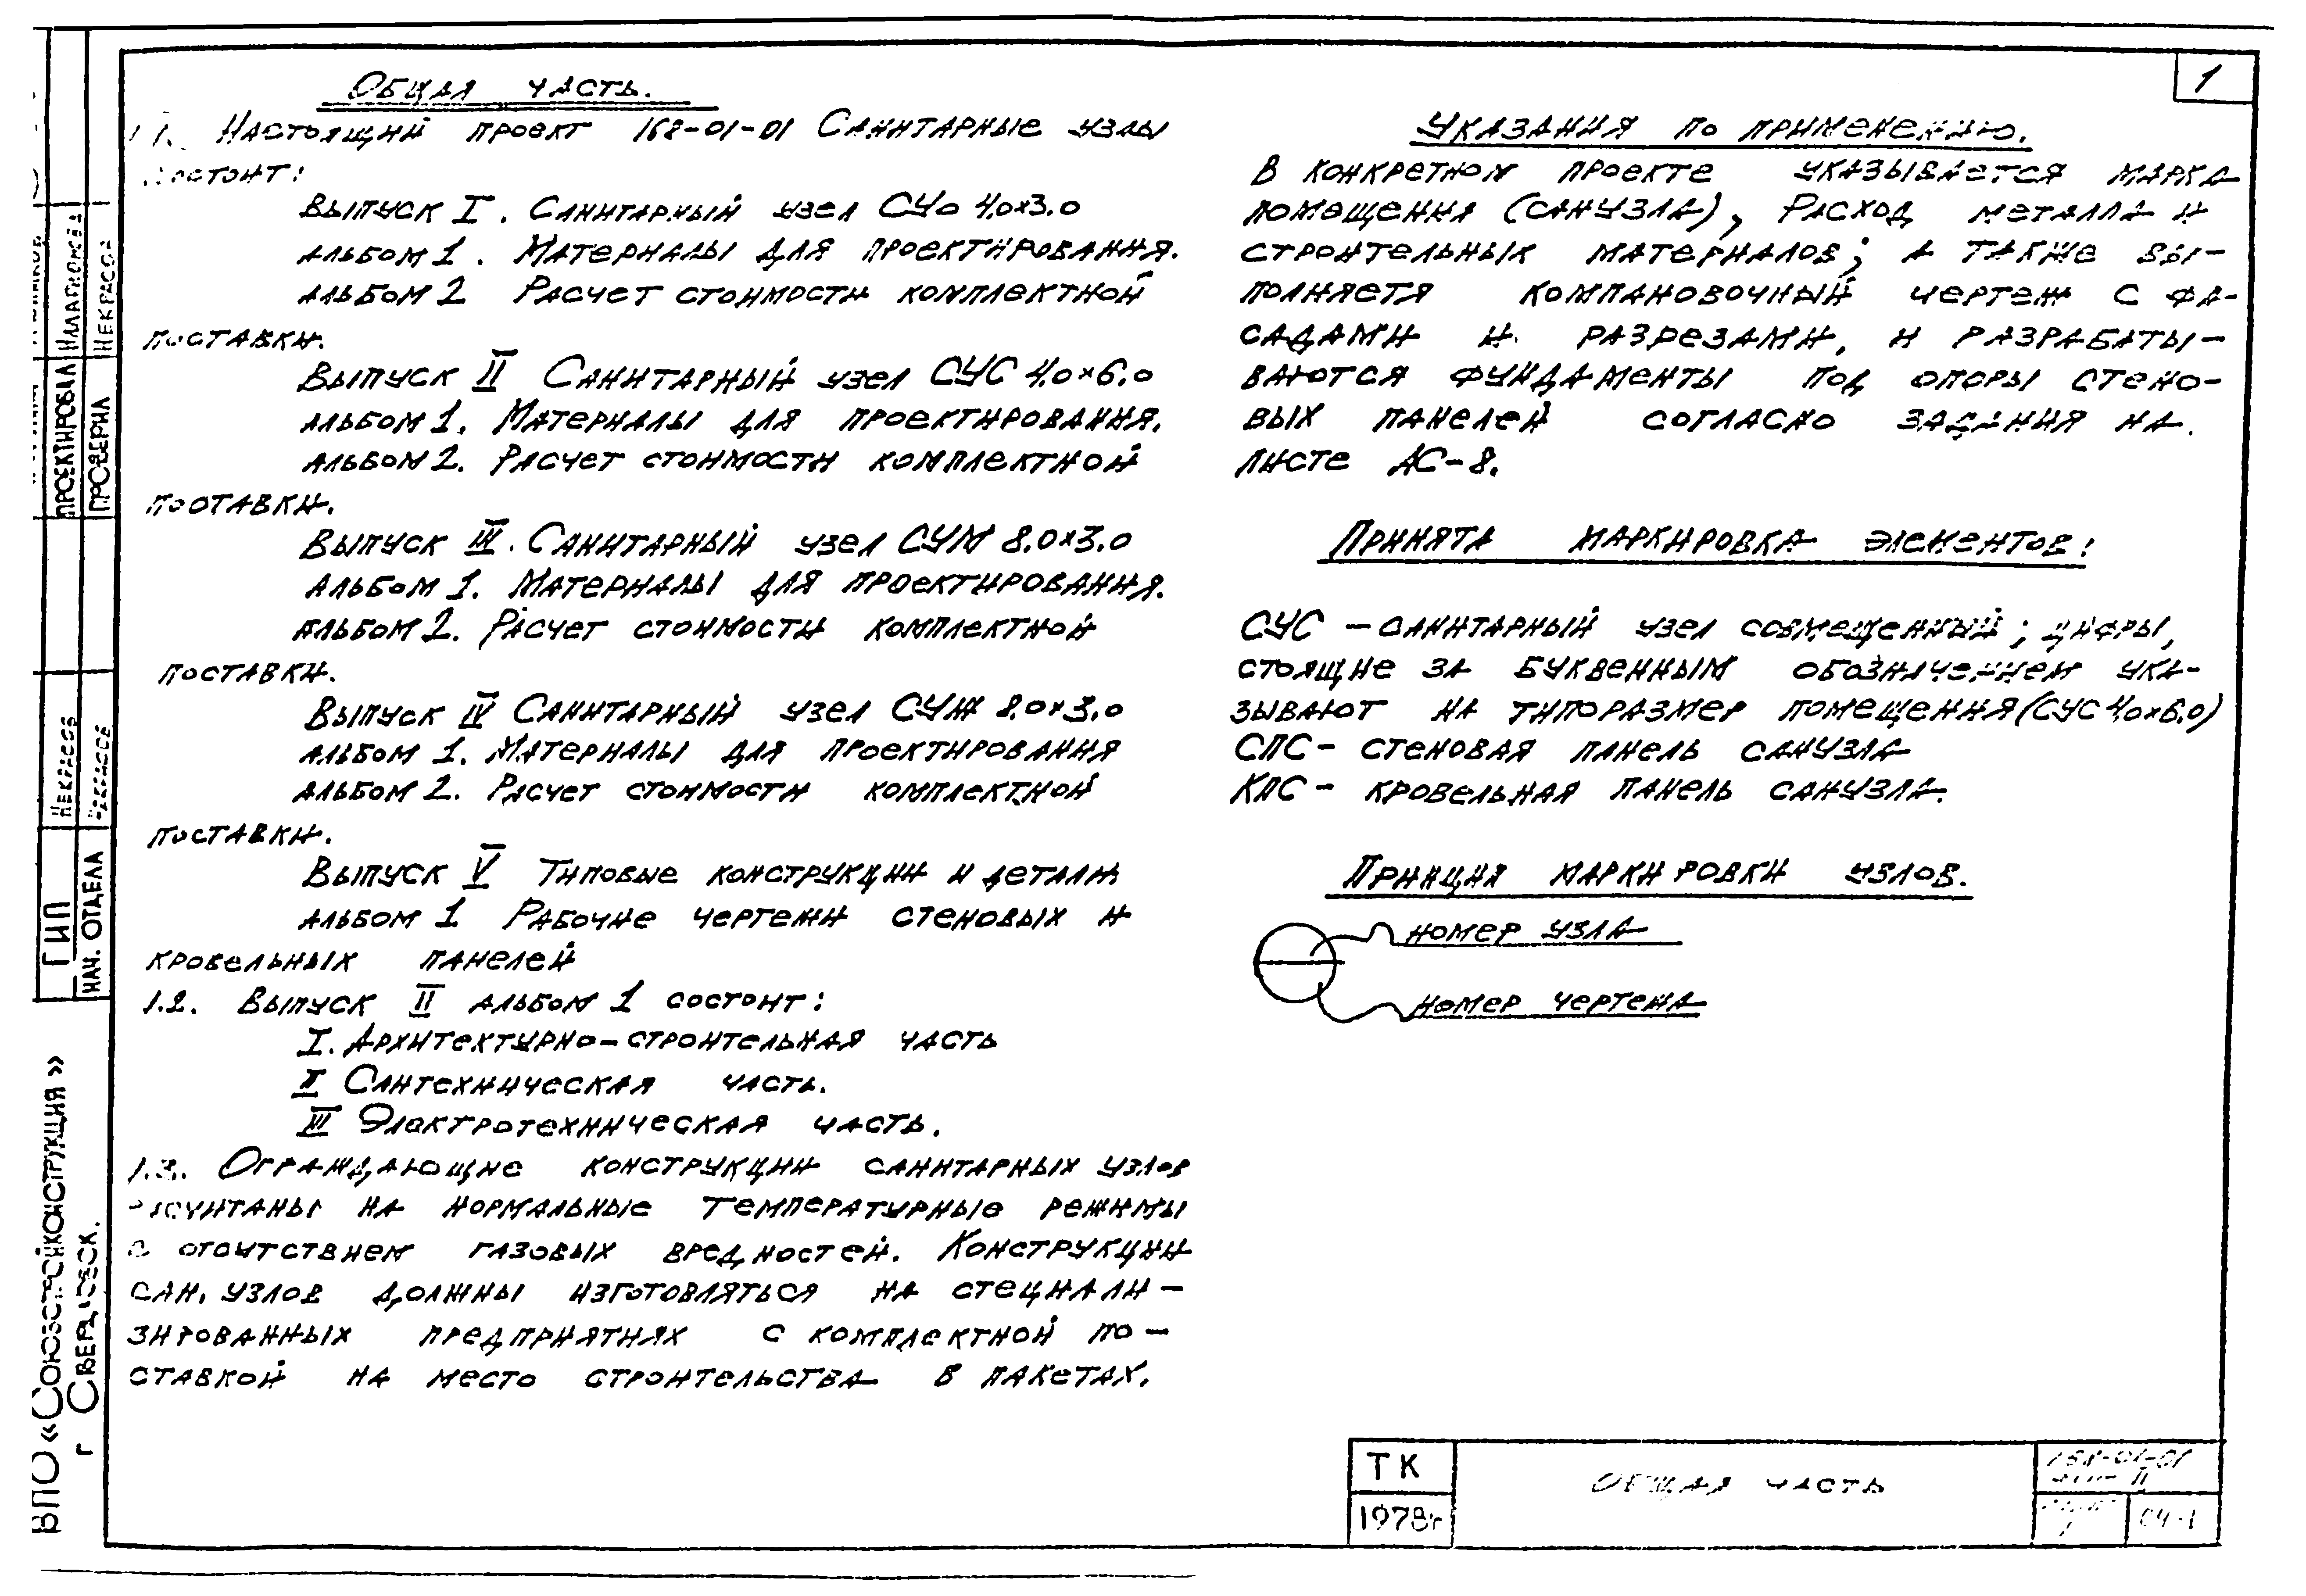 1
Общая часть.
1.1. Настоящий проект 168-01-01 Санитарные узлы
состоит:
Выпуск I. Санитарный узел СУо 4.0×3.0
альбом 1. Материалы для проектирования.
альбом 2 Расчет стоимости комплектной
поставки.
Выпуск II Санитарный узел СУС 4.0×6.0
альбом 1. Материалы для проектирования.
альбом 2. Расчет стоимости комплектной
поставки.
Выпуск III. Санитарный узел СУМ 8.0×3.0
альбом 1. Материалы для проектирования.
альбом 2. Расчет стоимости комплектной
поставки.
Выпуск IV Санитарный узел СУЖ 8.0×3.0
альбом 1. Материалы для проектирования
альбом 2. Расчет стоимости комплектной
поставки.
Выпуск V Типовые конструкции и детали
альбом 1 Рабочие чертежи стеновых и
кровельных панелей
1.2. Выпуск II альбом 1 состоит:
I. Архитектурно-строительная часть
II Сантехническая часть.
III Электротехническая часть.
1.3. Ограждающие конструкции санитарных узлов
расчитаны на нормальные температурные режимы
с отсутствием газовых вредностей. Конструкции
сан. узлов должны изготовляться на специали-
зированных предприятиях с комплектной по-
ставкой на место строительства в пакетах.
Указания по применению.
В конкретном проекте указывается марка
помещения (санузла), Расход металла и
строительных материалов; а также вы-
полняетя компановочный чертеж с фа-
садами и разрезами, и разрабаты-
ваются фундаменты под опоры стено-
вых панелей согласно задания на
листе АС-8.
Принята маркировка элементов:
СУС – санитарный узел совмещенный; цифры,
стоящие за буквенным обозначением ука-
зывают на типоразмер помещения (СУС 4,0×6.0)
СПС – стеновая панель санузла
КПС – кровельная панель санузла.
Принция маркировки узлов.
номер узла
номер чертежа
ТК
1978г
Общая часть
168-01-01
вып II
1
ОЧ-1
проектировал
проверил
Некрасов
ГИП
Некрасов
Нач. отдела
ВПО «Союзстройконструкция»
г Свердловск.